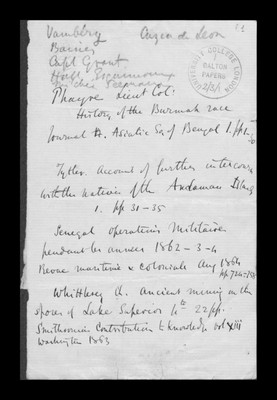 Vambéry
Cieza de Leon
Capt Grant
UNIVERSITY COLLEGE LONDON
GALTON
PAPERS
Phayre Lieut Col:
History of the Burmah race
Journal As. Asiatic Soc of Bengal 1. pp
Tytler. Account of further intercourse
with the natives of the Andaman Islands
1. pp 31-35
Senegal operations Militaires
pendant les annees 1862-3-4
Revue maritime & coloniale Aug 1864
pp 724-
Whittlesey C. Ancient mining on the
shores of Lake Superior 4to 22 pp.
Smithsonian Contributions to Knowledge vol xiii
Washington 1863